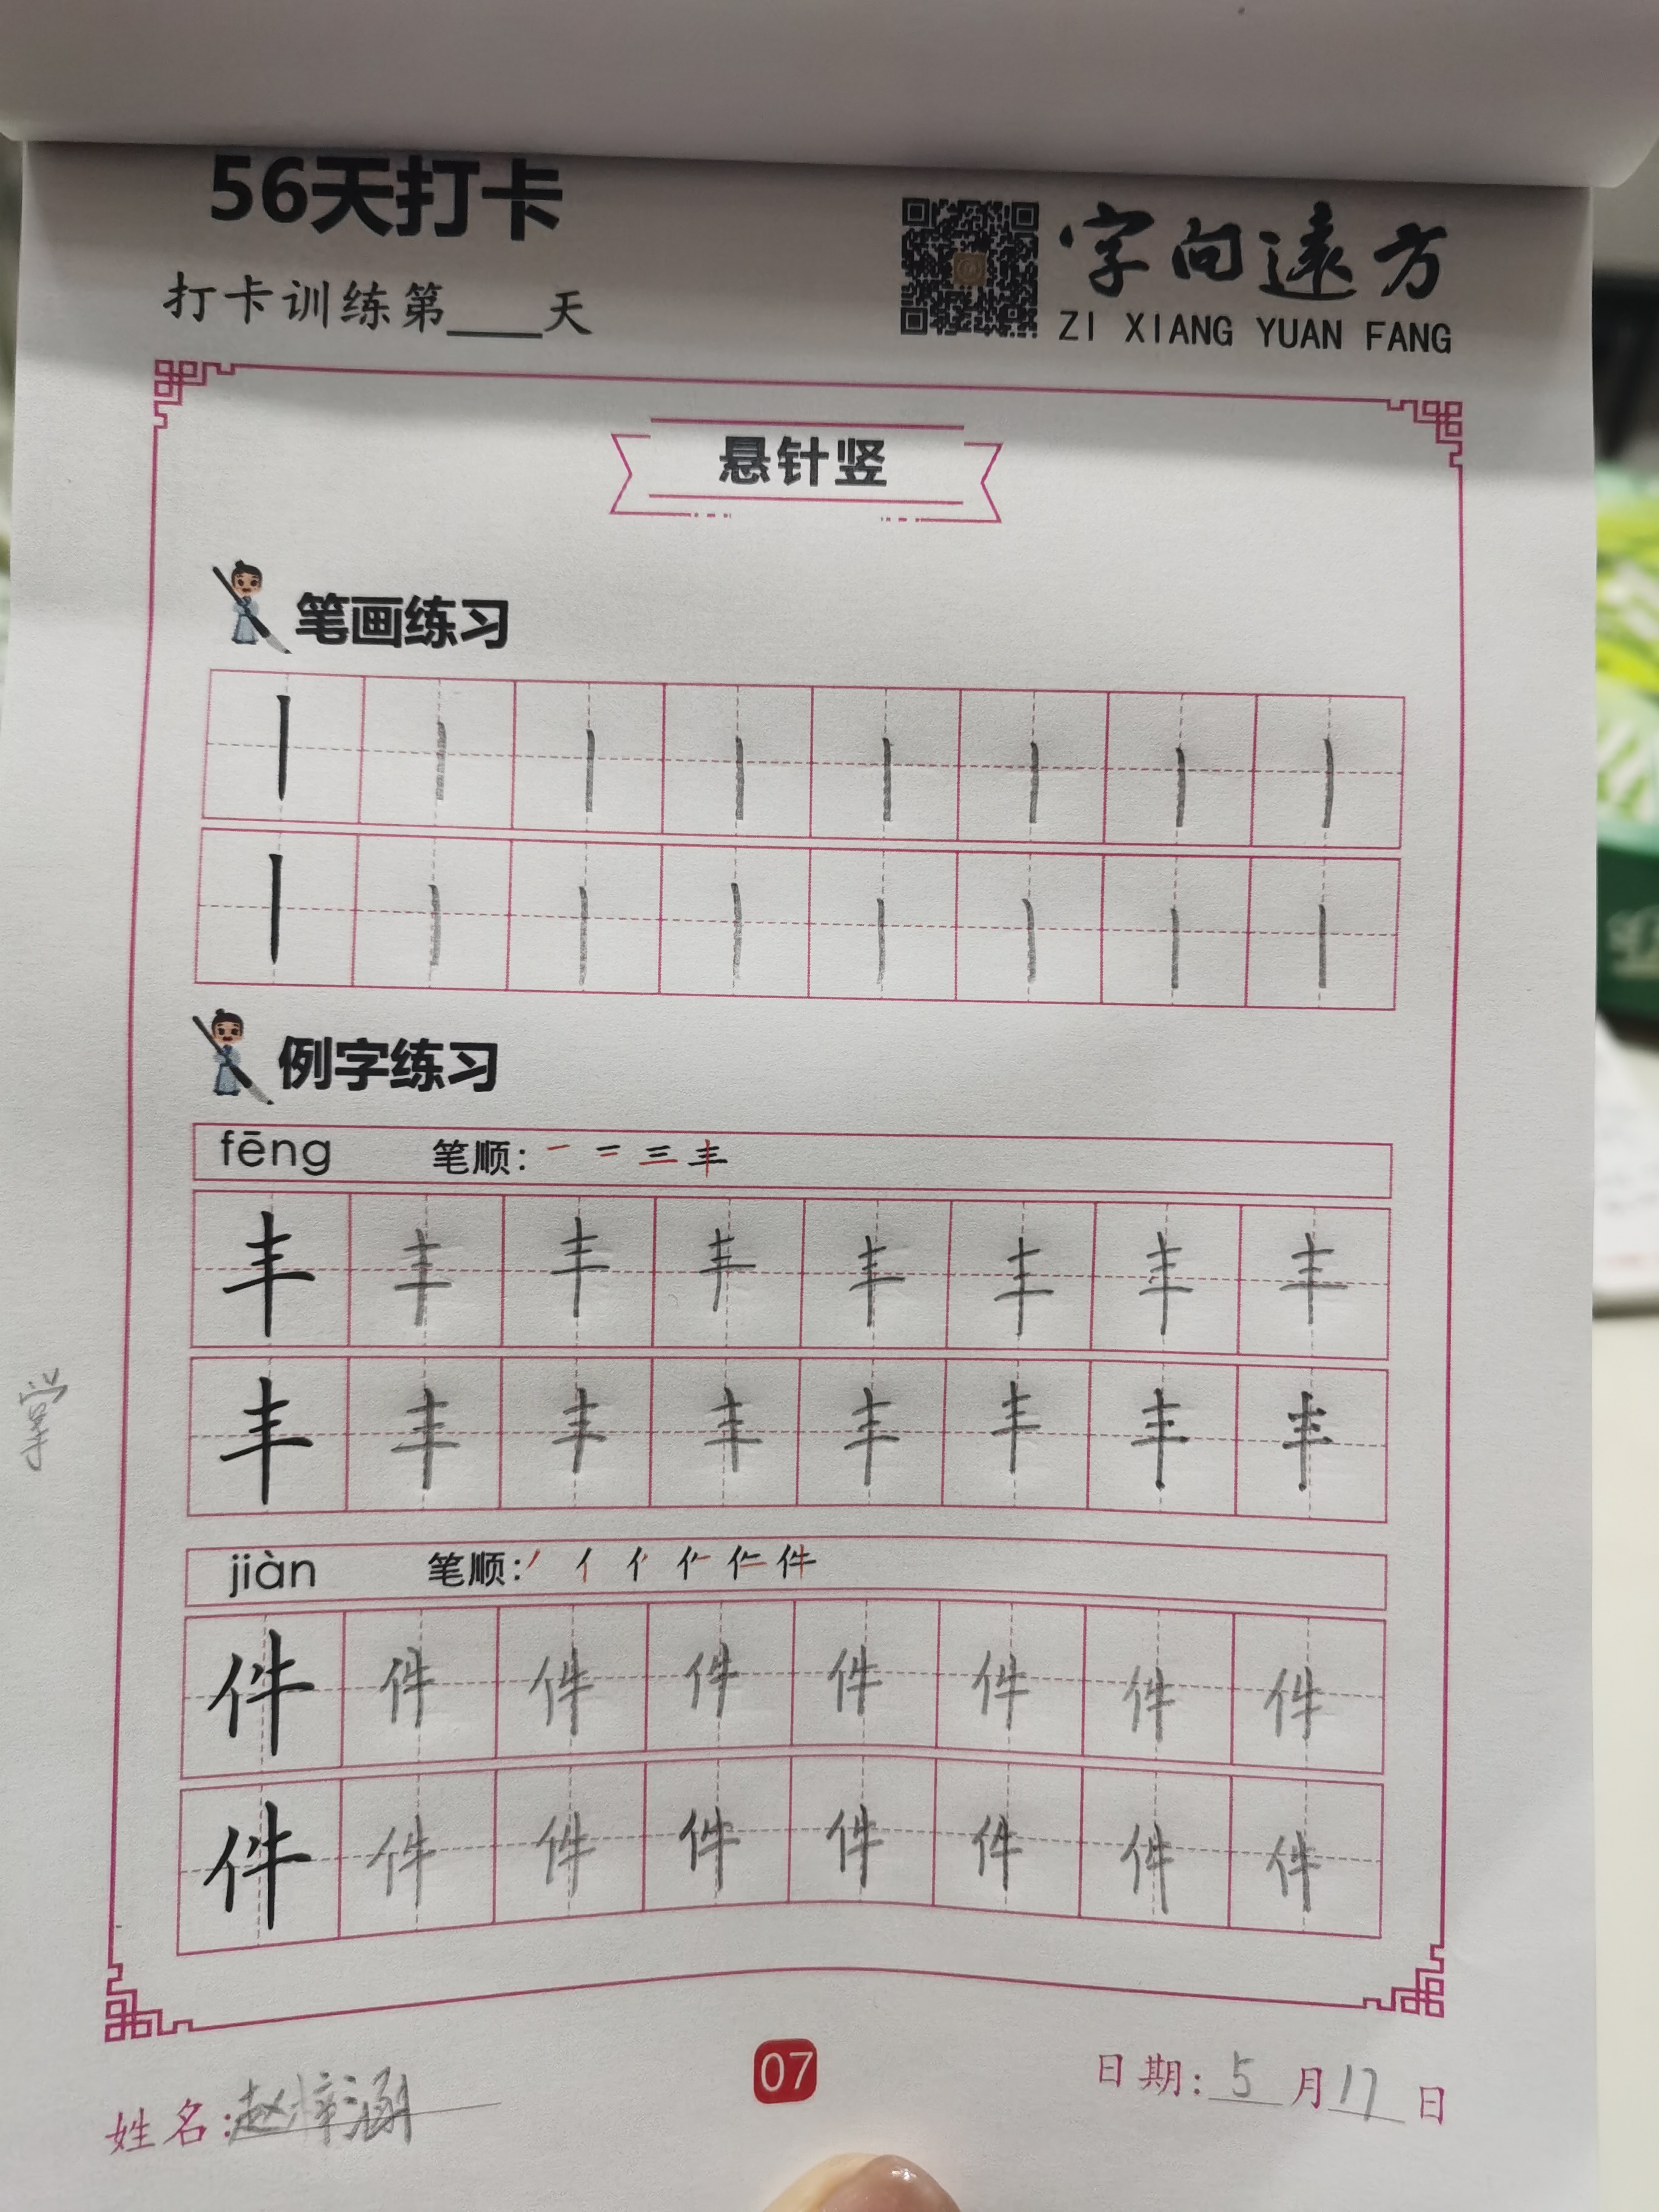 56天打卡
打卡训练第____天
字向远方
ZI XIANG YUAN FANG
悬针竖
笔画练习
丨 丨 丨 丨 丨 丨 丨 丨
丨 丨 丨 丨 丨 丨 丨 丨
例字练习
fēng 笔顺: 一 二 三 丰
丰 丰 丰 丰 丰 丰 丰 丰
丰 丰 丰 丰 丰 丰 丰 丰
jiàn 笔顺:
件 件 件 件 件 件 件 件
件 件 件 件 件 件 件 件
07
姓名:赵梓涵
日期:5月17日